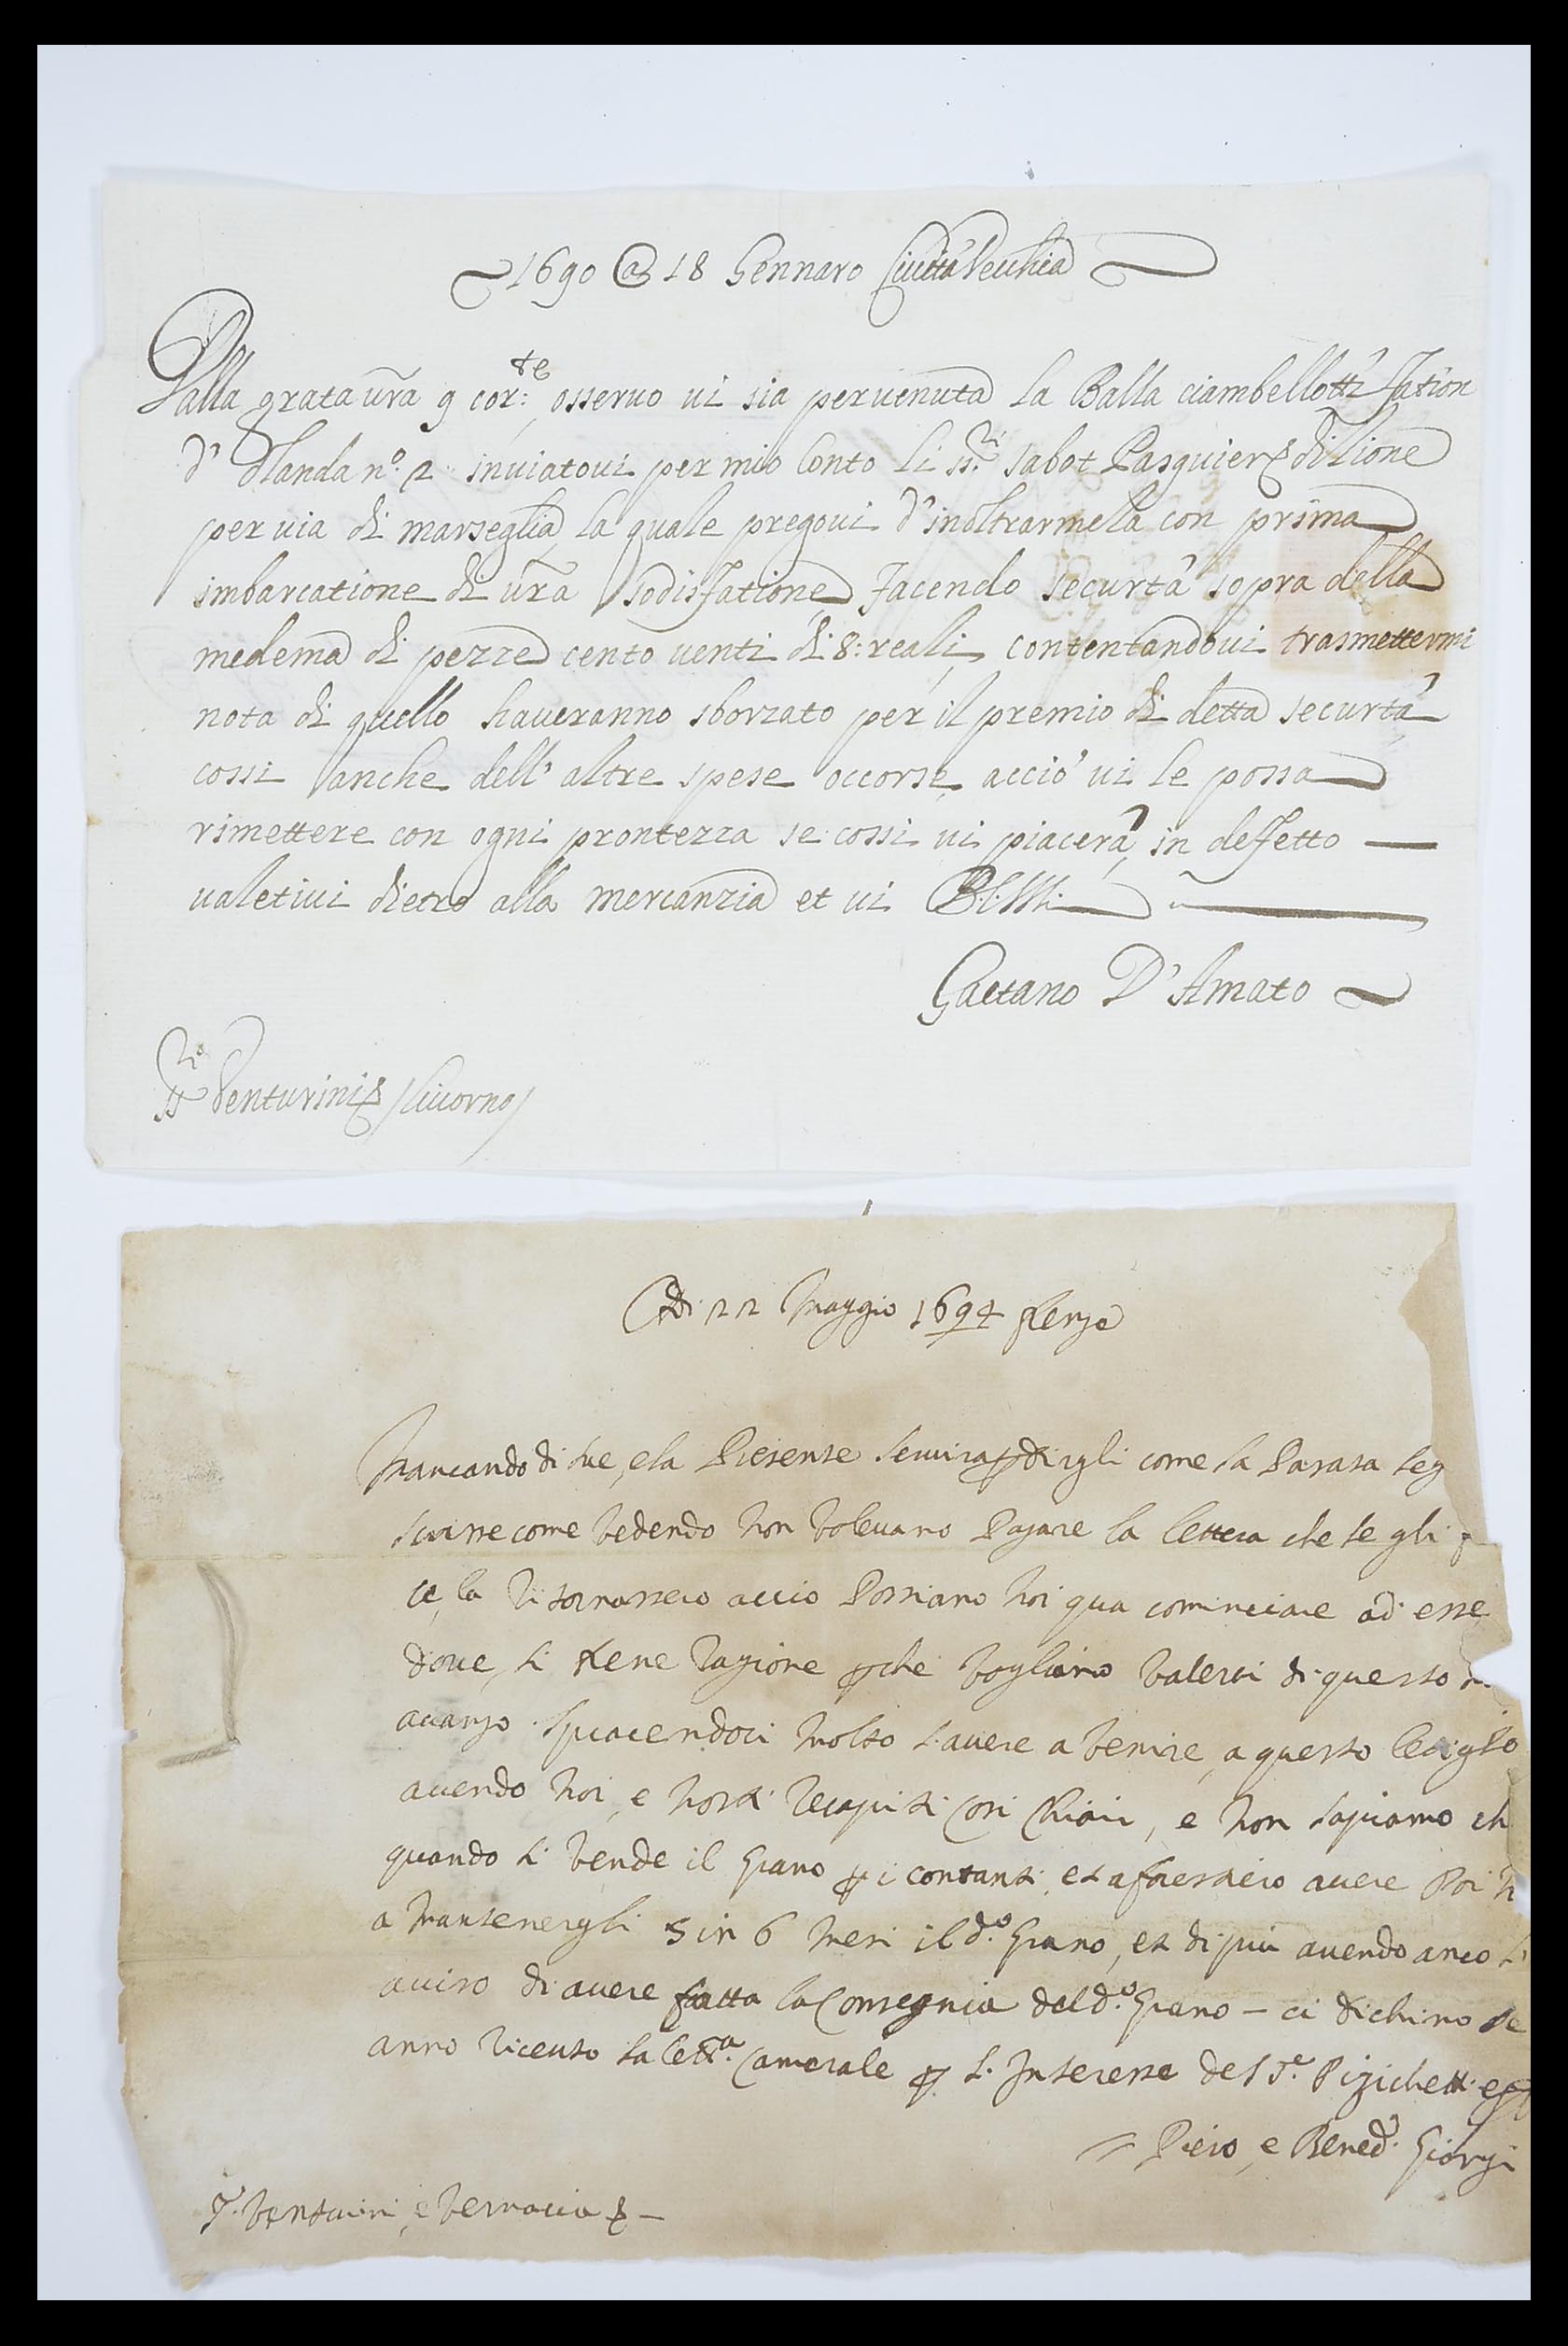 1690 @ 18 Gennaro Civita Vecchia
Dalla grata vra 9 cor:te osservo vi sia pervenuta la Balla ciambellotti
d'Olanda n.o 2 inviatovi per mio Conto li SS.ri Sabot Pasquier & di Lione
per via di marseglia, la quale pregovi d'inoltrarmela con prima
imbarcatione di vra sodisfatione, facendo securtà sopra della
medema di pezze cento venti di 8: reali, contentandovi trasmettermi
nota di quello haveranno sborzato per il premio di detta securtà
cossi anche dell'altre spese occorse, acciò vi le possa
rimettere con ogni prontezza se cossi vi piacerà, in deffetto
valetivi dietro alla mercanzia et vi B:l:M:
Gaetano D'Amato
SS.ri Venturini & Livorno
Adi 22 Maggio 1694 Firenze
Mancando di sue, e la Presente servirà p dirgli come la Parata seg
scrisse come vedendo non volevano Pagare la lettera che se gli
ce, la ritornassero accio Possiamo noi qua cominciare ad esse
dove, si tiene ragione p che vogliamo valerci di questo
avanzo spiacendoci molto l'avere a venire, a questo letigio
avendo noi, e nostri recapiti cosi chiari, e non sapiamo ch
quando si vende il grano p i contanti, et a forestiero avere Poi
a mantenergli 5 in 6 mesi il d.o grano, et di più avendo anco
aviso di avere fatta la Consegnia del d.o grano – ci dichino se
anno ricevto la lett.a Camerale p l'Interesse del S.e Pizichetti
Piero, e Bened.o Giorgi
S.ri Venturini, e Vernacia & –